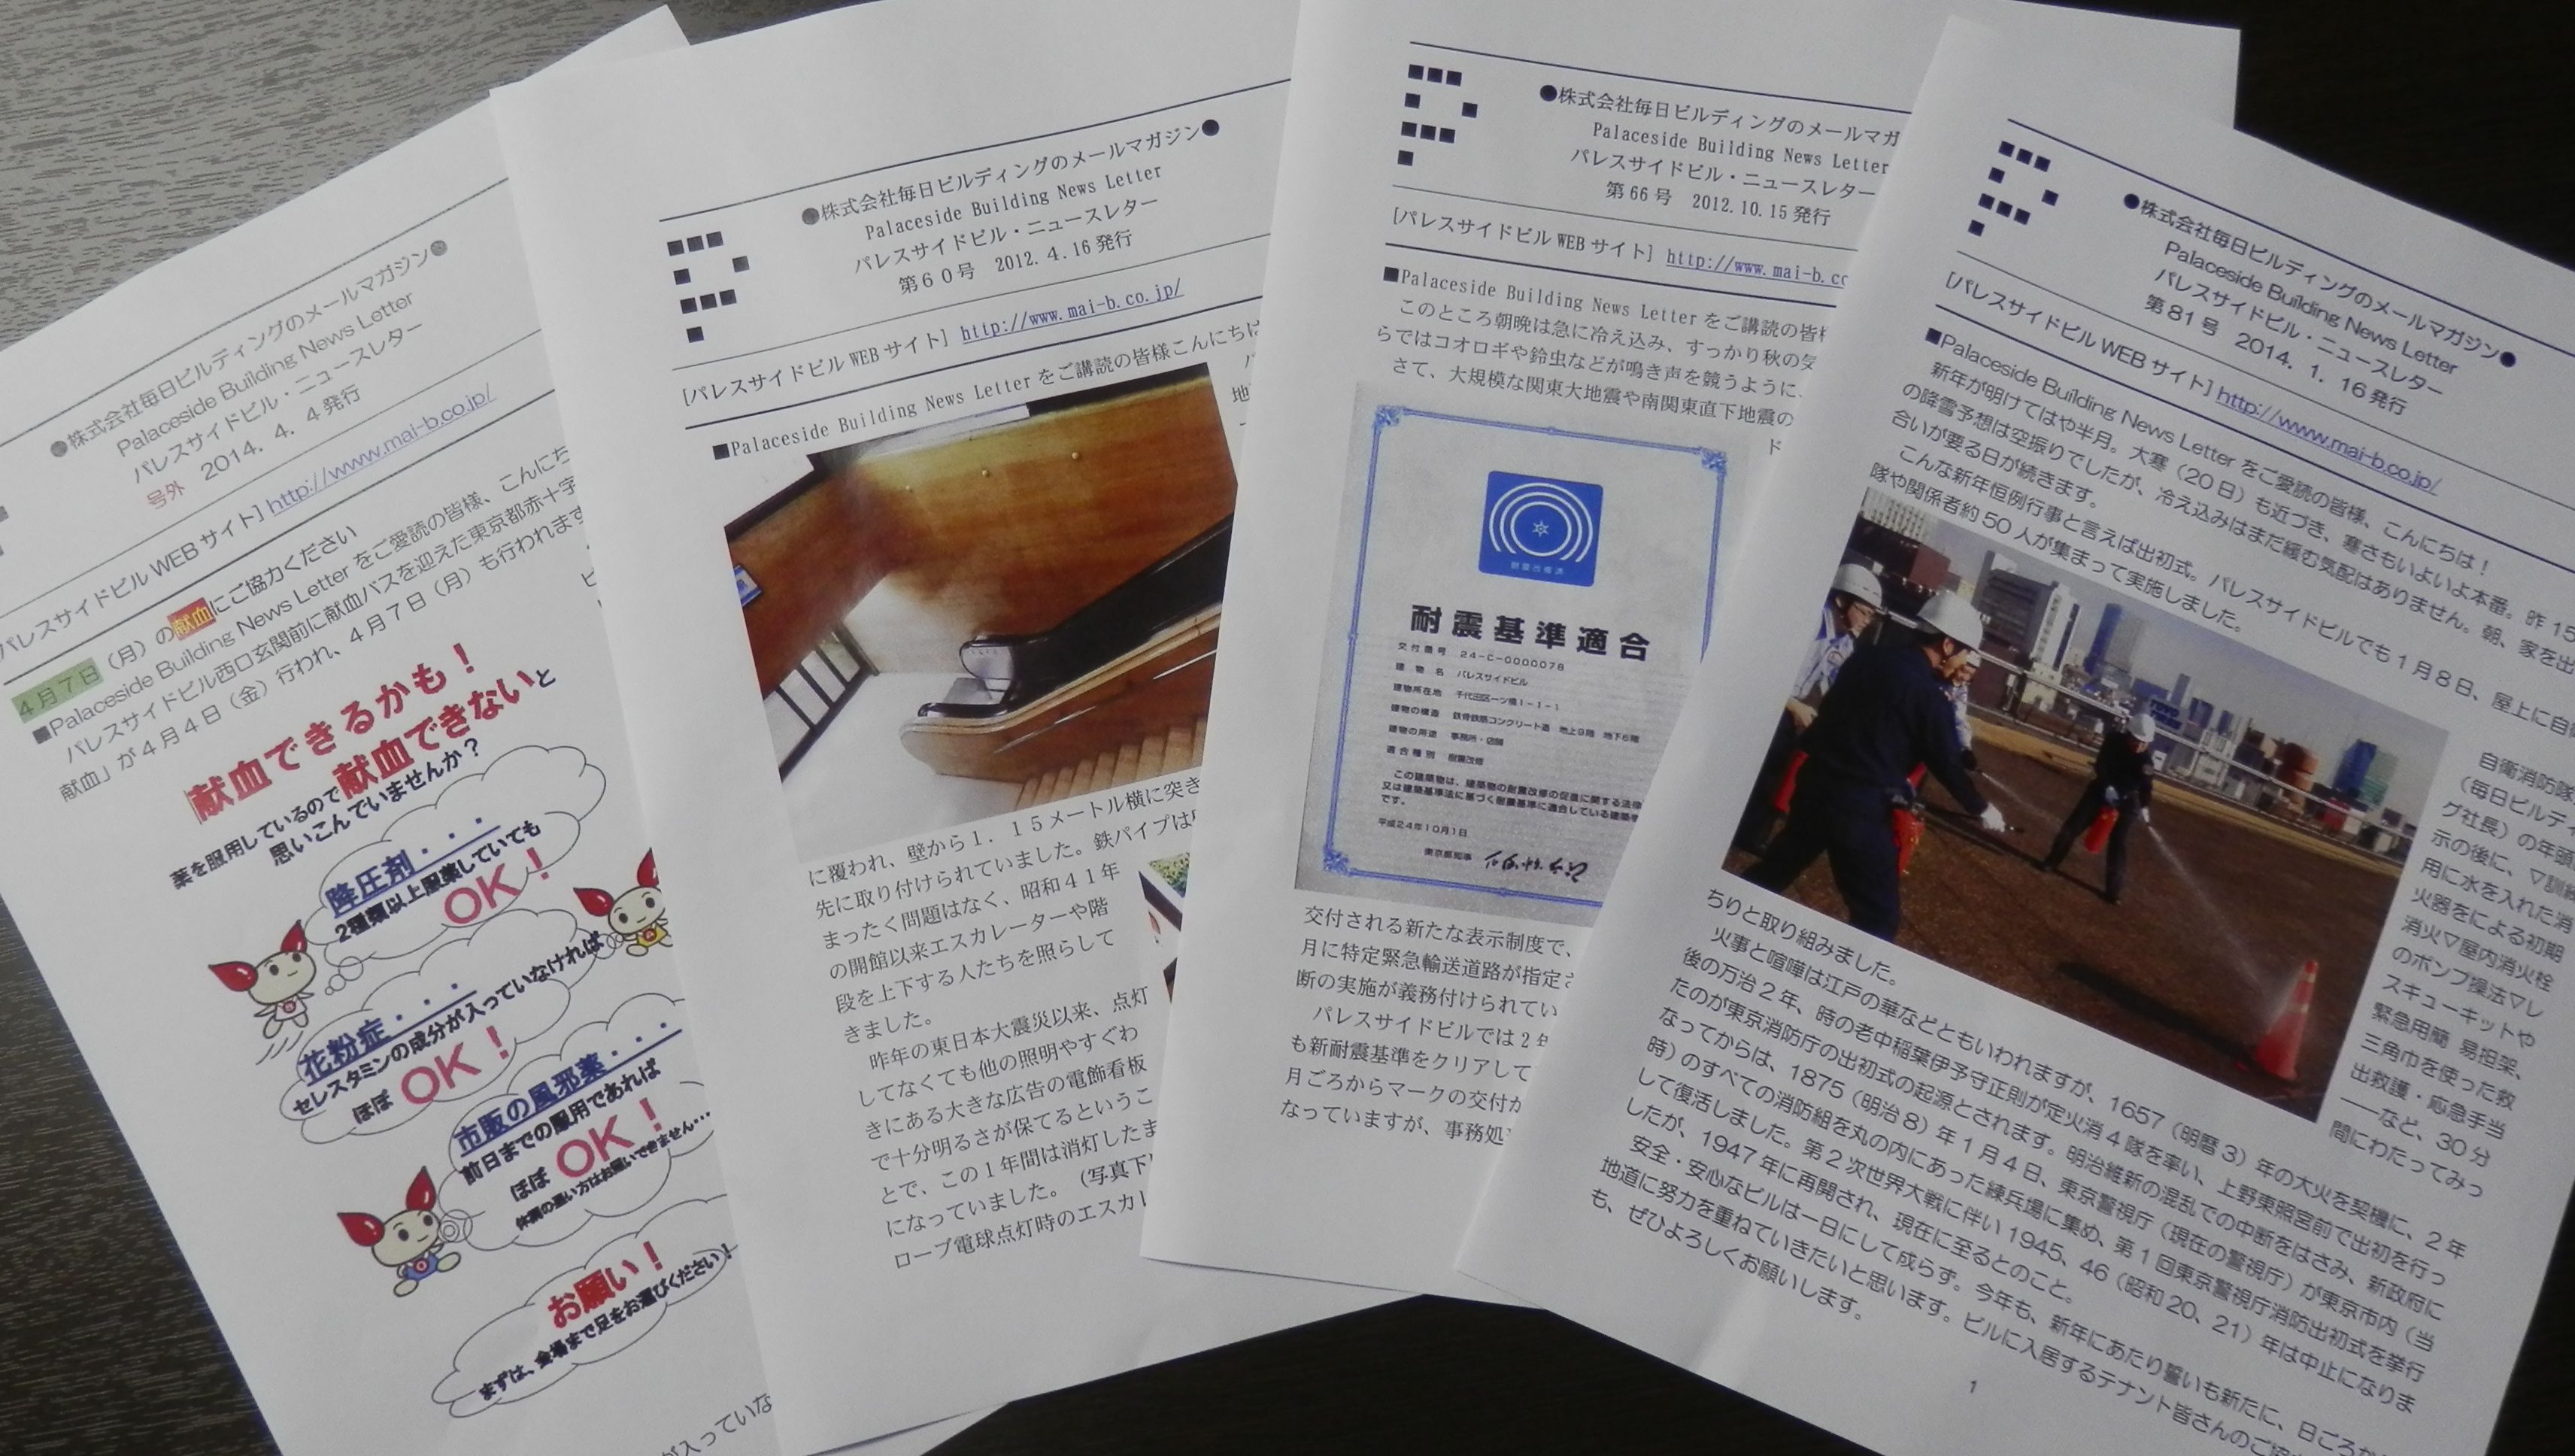 ●株式会社毎日ビルディングのメールマガジン●
Palaceside Building News Letter
パレスサイドビル・ニュースレター
号外 2014. 4. 4発行
パレスサイドビルWEBサイト] http://www.mai-b.co.jp/
4月7日(月)の献血にご協力ください
■Palaceside Building News Letter をご愛読の皆様、こんにち
パレスサイドビル西口玄関前に献血バスを迎えた東京都赤十字
献血」が4月4日(金)行われ、4月7日(月)も行われます
献血できるかも!
薬を服用しているので献血できないと
思いこんでいませんか?
降圧剤・・・
2種類以上服薬していても
OK!
花粉症・・・
セレスタミンの成分が入っていなければ
ほぼ OK!
市販の風邪薬・・・
前日までの服用であれば
ほぼ OK!
体調の悪い方はお願いできません…
お願い!
まずは、会場まで足をお運びください!
が入っていな
●株式会社毎日ビルディングのメールマガジン●
Palaceside Building News Letter
パレスサイドビル・ニュースレター
第60号 2012. 4. 16発行
[パレスサイドビルWEBサイト] http://www.mai-b.co.jp/
■Palaceside Building News Letter をご講読の皆様こんにちは
に覆われ、壁から1.15メートル横に突き
先に取り付けられていました。鉄パイプは
まったく問題はなく、昭和41年
の開館以来エスカレーターや階
段を上下する人たちを照らして
きました。
昨年の東日本大震災以来、点灯
してなくても他の照明やすぐわ
きにある大きな広告の電飾看板
で十分明るさが保てるというこ
とで、この1年間は消灯したま
になっていました。(写真下
ロープ電球点灯時のエスカレ
●株式会社毎日ビルディングのメールマガ
Palaceside Building News Letter
パレスサイドビル・ニュースレター
第66号 2012.10.15発行
[パレスサイドビルWEBサイト] http://www.mai-b.co
■Palaceside Building News Letter をご講読の皆様
このところ朝晩は急に冷え込み、すっかり秋の気
らではコオロギや鈴虫などが鳴き声を競うように、
さて、大規模な関東大地震や南関東直下地震の
ド
耐震改修済
耐震基準適合
交付番号 24-C-0000078
建物名 パレスサイドビル
建物所在地 千代田区一ツ橋1-1-1
建物の構造 鉄骨鉄筋コンクリート造 地上9階 地下6階
建物の用途 事務所・店舗
適合種別 耐震改修
この建築物は、建築物の耐震改修の促進に関する法律
又は建築基準法に基づく耐震基準に適合している建築
です。
平成24年10月1日
東京都知事
交付される新たな表示制度で、
月に特定緊急輸送道路が指定さ
断の実施が義務付けられてい
パレスサイドビルでは2年
も新耐震基準をクリアして
月ごろからマークの交付が
なっていますが、事務処
●株式会社毎日ビルディングのメールマガジン●
Palaceside Building News Letter
パレスサイドビル・ニュースレター
第81号 2014. 1. 16発行
[パレスサイドビルWEBサイト] http://www.mai-b.co.jp/
■Palaceside Building News Letter をご愛読の皆様、こんにちは!
新年が明けてはや半月。大寒(20日)も近づき、寒さもいよいよ本番。昨15
の降雪予想は空振りでしたが、冷え込みはまだ緩む気配はありません。朝、家を出
合いが要る日が続きます。
こんな新年恒例行事と言えば出初式。パレスサイドビルでも1月8日、屋上に自衛
隊や関係者約50人が集まって実施しました。
自衛消防隊
(毎日ビルディ
グ社長)の年頭
示の後に、▽訓練
用に水を入れた消
火器をによる初期
消火▽屋内消火栓
のポンプ操法▽レ
スキューキットや
緊急用簡易担架、
三角巾を使った救
出救護・応急手当
――など、30分
間にわたってみっ
ちりと取り組みました。
火事と喧嘩は江戸の華などともいわれますが、1657(明暦3)年の大火を契機に、2年
後の万治2年、時の老中稲葉伊予守正則が定火消4隊を率い、上野東照宮前で出初を行っ
たのが東京消防庁の出初式の起源とされます。明治維新の混乱での中断をはさみ、新政府に
なってからは、1875(明治8)年1月4日、東京警視庁(現在の警視庁)が東京市内(当
時)のすべての消防組を丸の内にあった練兵場に集め、第1回東京警視庁消防出初式を挙行
して復活しました。第2次世界大戦に伴い1945、46(昭和20、21)年は中止になりま
したが、1947年に再開され、現在に至るとのこと。
安全・安心なビルは一日にして成らず。今年も、新年にあたり誓いも新たに、日ごろから
地道に努力を重ねていきたいと思います。ビルに入居するテナント皆さんのご協
も、ぜひよろしくお願いします。
1